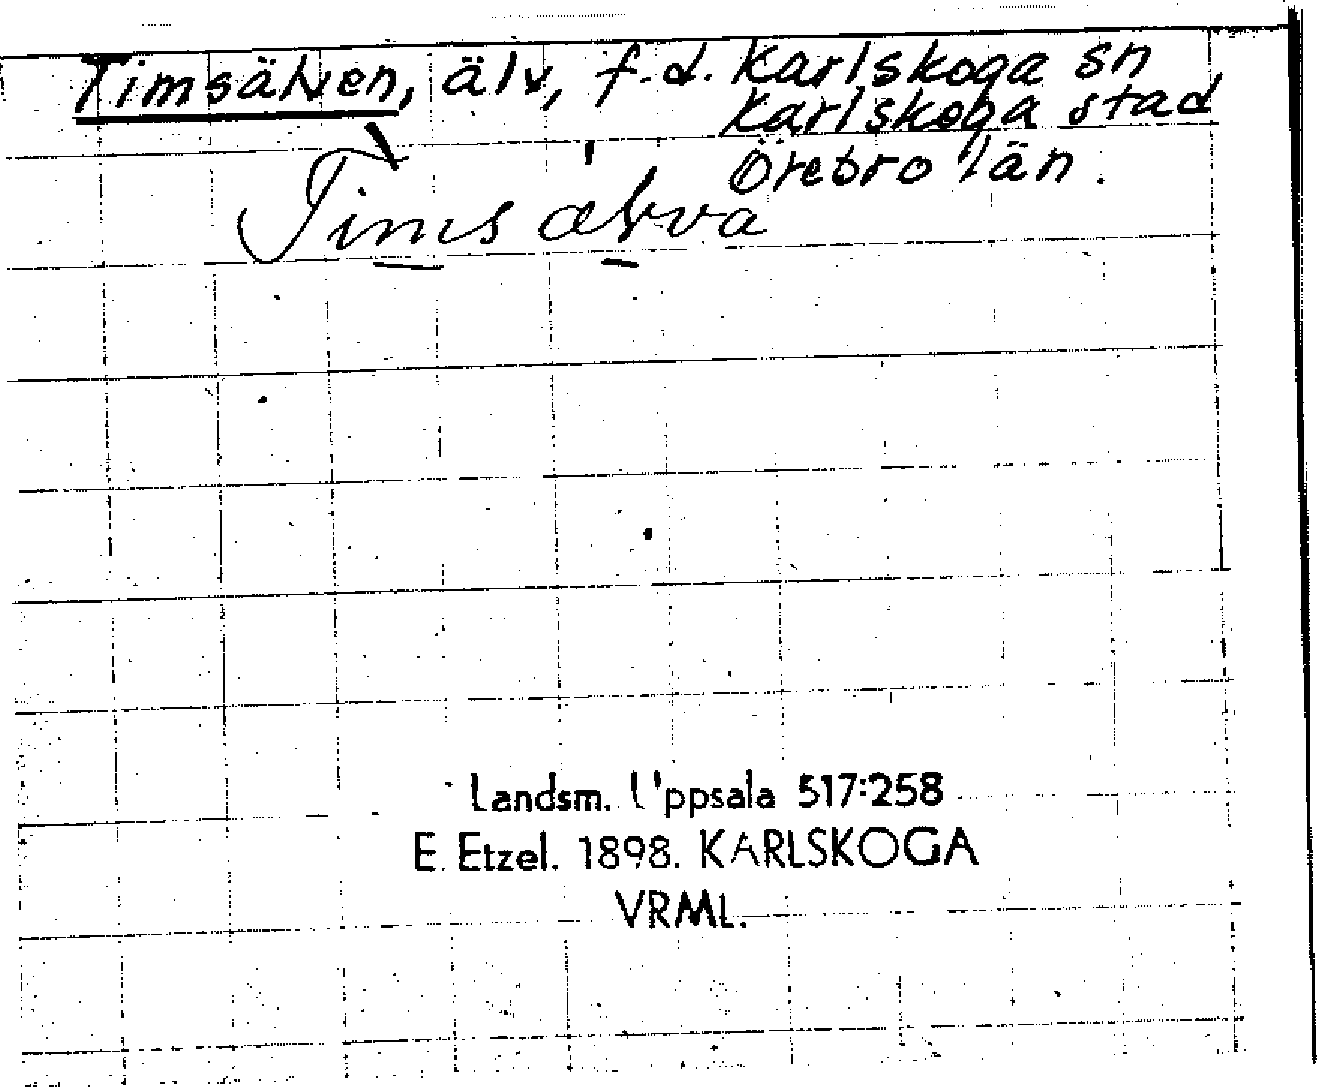 Timsälven, älv, f.d. Karlskoga sn
Karlskoga stad
Örebro län.
Tims älva
Landsm. Uppsala 517:258
E. Etzel. 1898. KARLSKOGA
VRML.